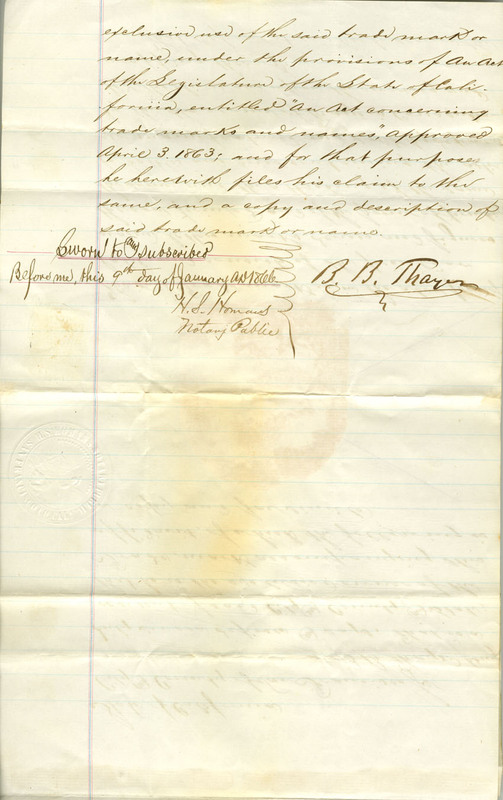 exclusive use of the said trade mark or
name, under the provisions of An Act
of the Legislature of the State of Cali-
fornia, entitled "An Act concerning
trade marks and names", approved
April 3. 1863; and for that purpose
he herewith files his claim to the
same, and a copy and description of
said trade mark or name.
Sworn to & subscribed
Before me, this 9th day of January AD 1866
B. B. Thayer
H. S. Homans
Notary Public